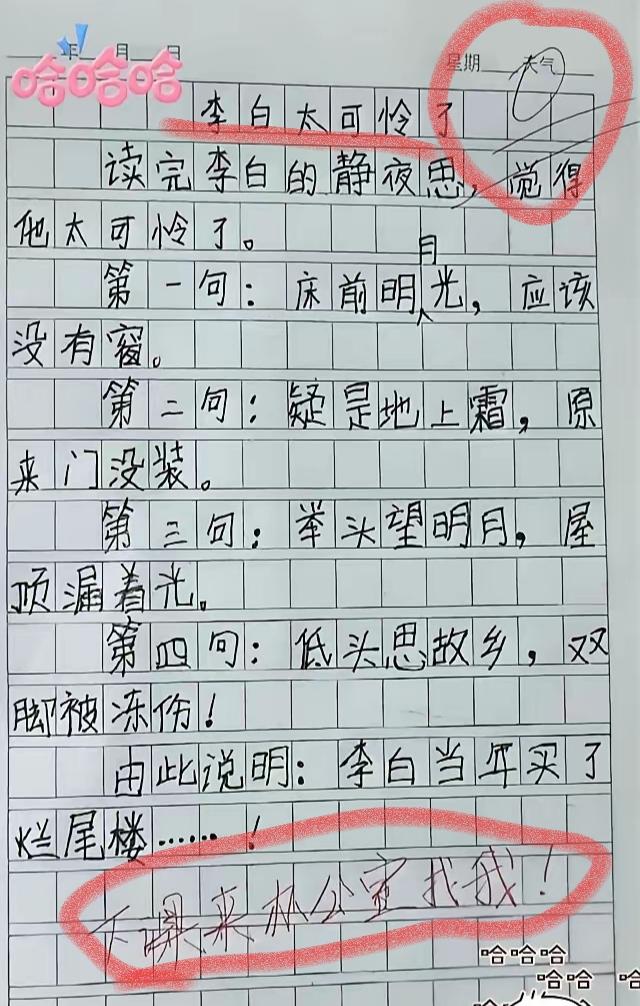 年 月 日 星期 天气
哈哈哈
李白太可怜了
读完李白的静夜思，觉得
他太可怜了。
第一句：床前明月光，应该
没有窗。
第二句：疑是地上霜，原
来门没装。
第三句：举头望明月，屋
顶漏着光。
第四句：低头思故乡，双
脚被冻伤！
由此说明：李白当年买了
烂尾楼……！
下课来办公室找我！
哈哈哈哈
哈哈哈 哈